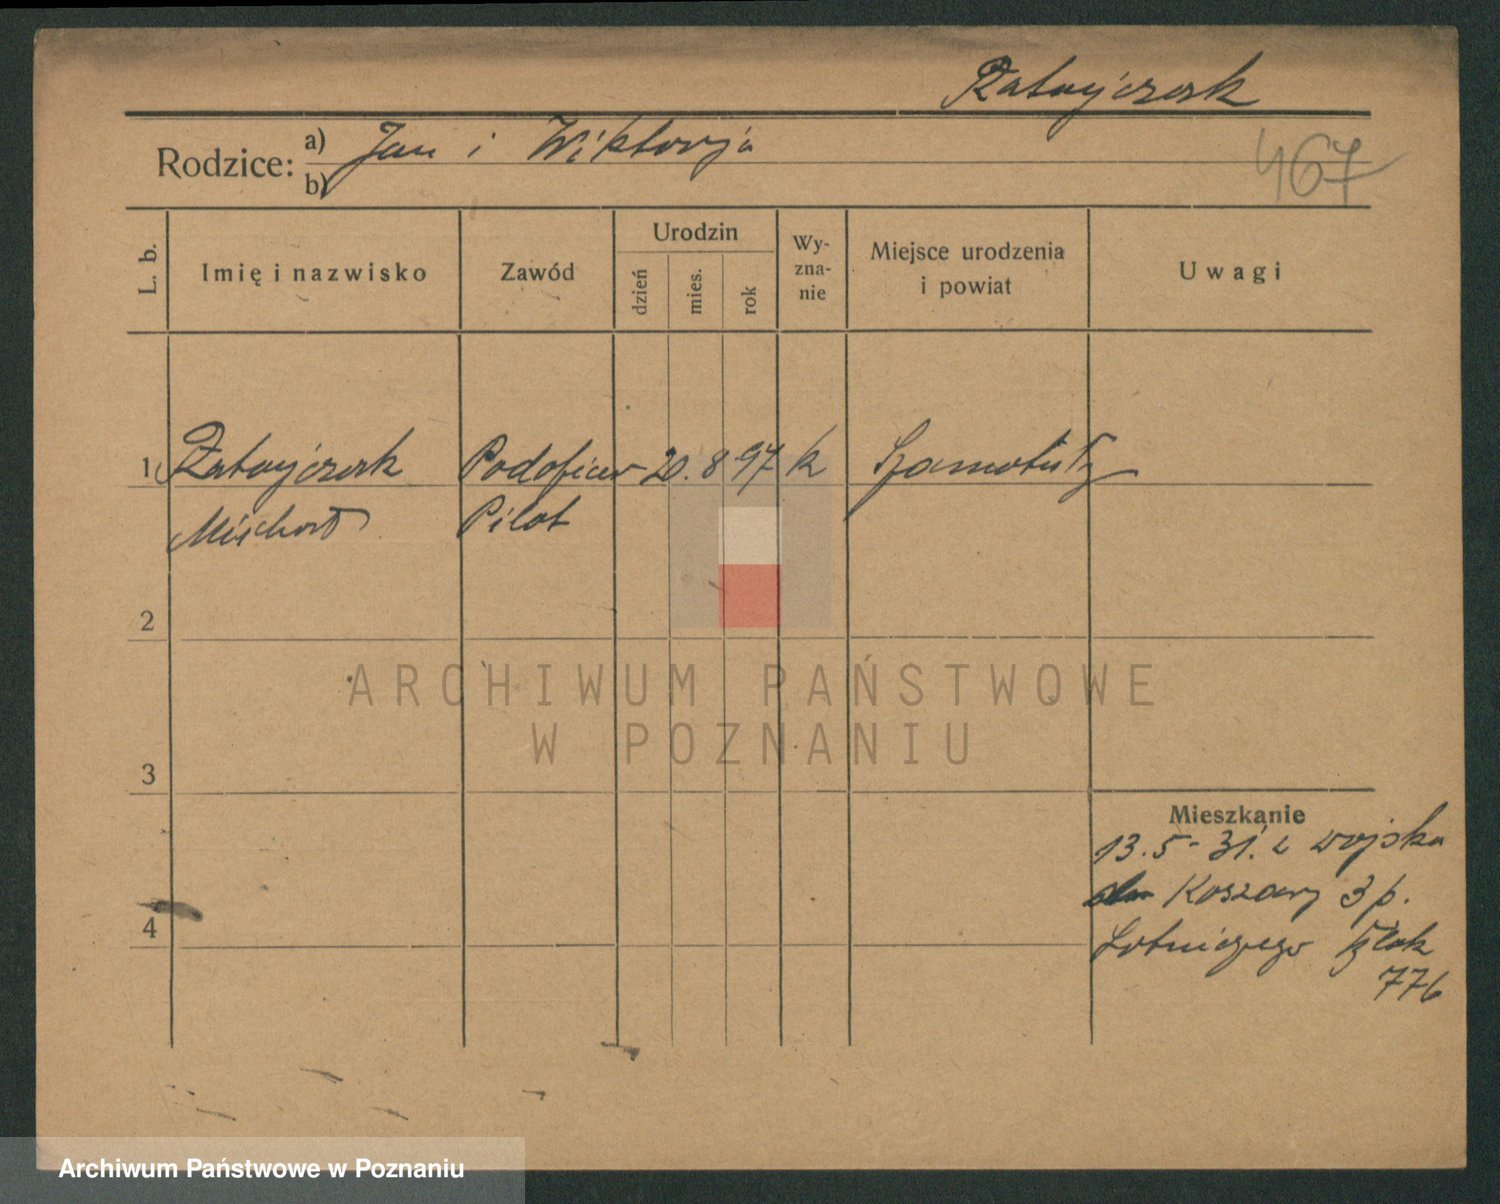 Ratajczak
Rodzice: a) Jan i Wiktorja
b)
467
L. b. Imię i nazwisko Zawód Urodzin dzień mies. rok Wy-zna-nie Miejsce urodzenia i powiat Uwagi
1 Ratajczak Podoficer 20. 8 97 k Szamotuły
Pilot
2
ARCHIWUM PAŃSTWOWE
W POZNANIU
3
Mieszkanie
13.5-31. z wojska
Koszary 3 p.
4
Lotniczego
776
Archiwum Państwowe w Poznaniu